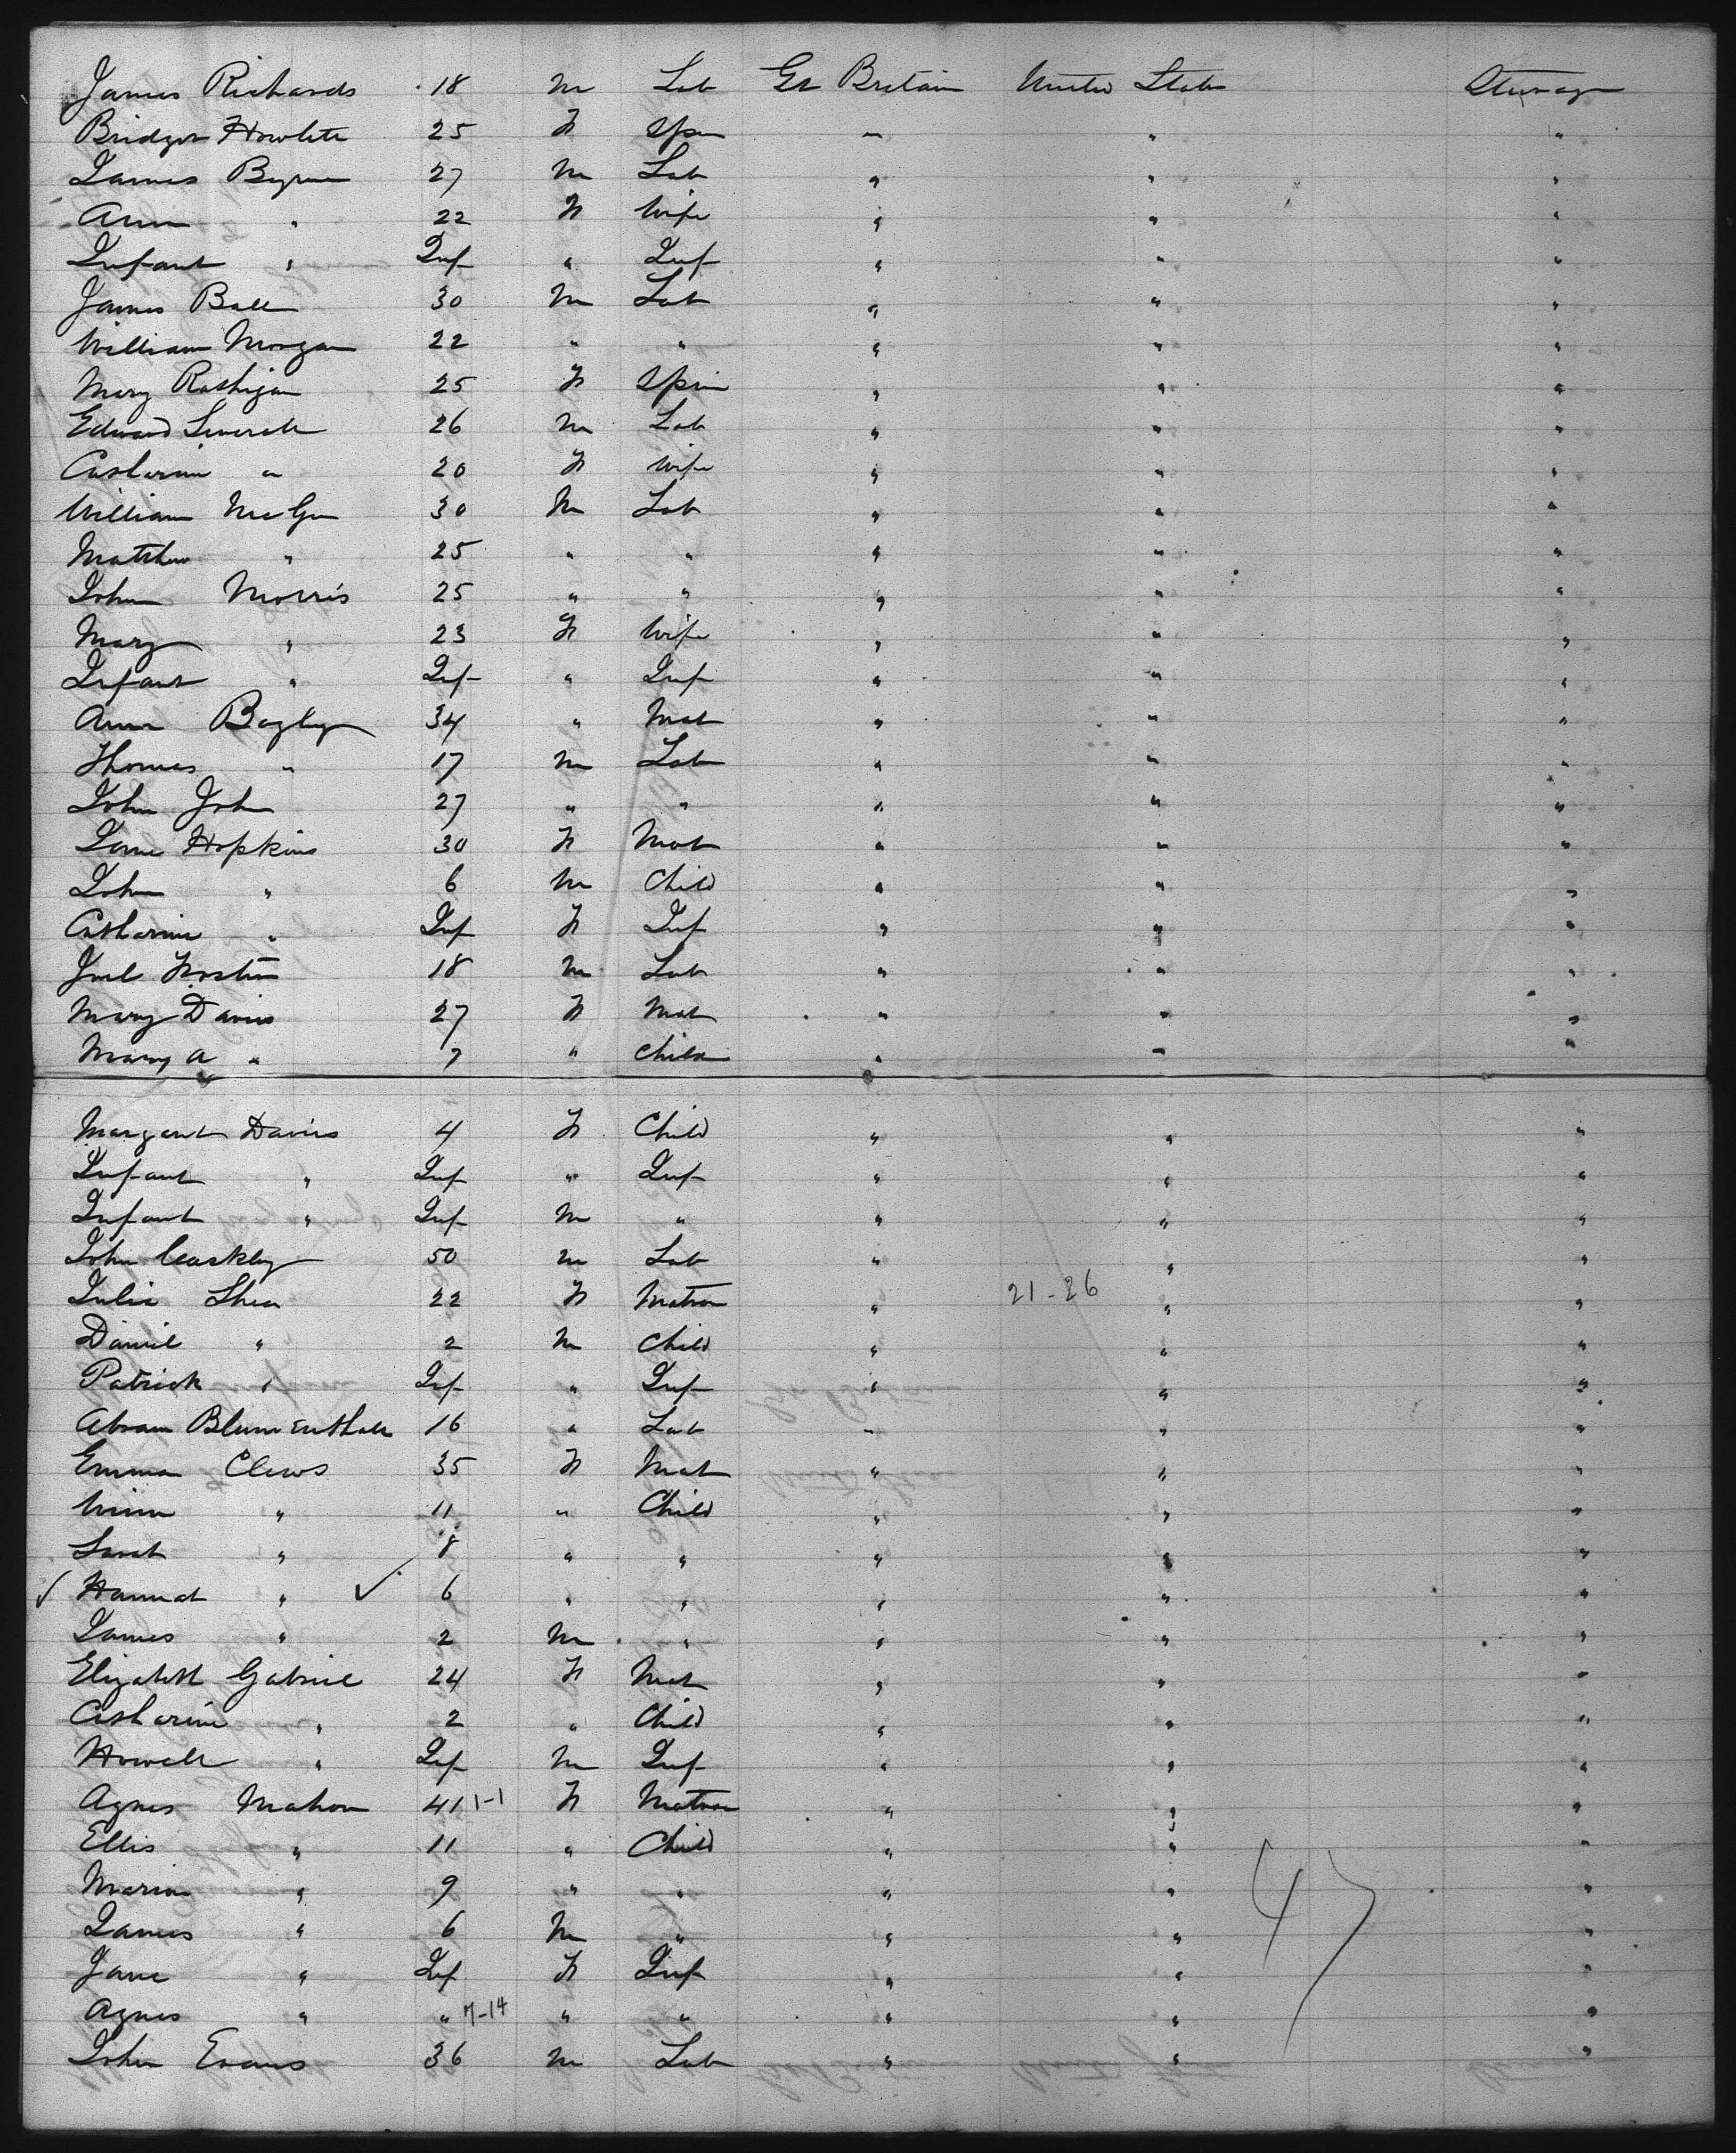 James Richards 18 M Lab Gt Britain United States Steerage
Bridget Howlett 25 F Spin " " "
James Byrne 27 M Lab " " "
Ann " 22 F Wife " " "
Infant " Inf " Inf " " "
James Ball 30 M Lab " " "
William Morgan 22 " " " " "
Mary Rashigan 25 F Spin " " "
Edward 26 M Lab " " "
Catharine " 20 F Wife " " "
William McGu 30 M Lab " " "
Matthew " 25 " " " " "
John Morris 25 " " " " "
Mary " 23 F Wife " " "
Infant " Inf " Inf " " "
Ann Bagley 34 " Mat " " "
Thomas " 17 M Lab " " "
John John 27 " " " " "
Jane Hopkins 30 F Mat " " "
John " 6 M Child " " "
Catharine " Inf F Inf " " "
Joel 18 M Lab " " "
Mary Davis 27 F Mat " " "
Mary A " 7 " Child " " "
Margaret Davies 4 F Child " " "
Infant " Inf " Inf " " "
Infant " Inf M " " " "
John Coaskley 50 M Lab " " "
Julia Shea 22 F Matron " 21-26 " "
Daniel " 2 M Child " " "
Patrick " Inf " Inf " " "
Abram Blumenthall 16 " Lab " " "
Emma Clews 35 F Mat " " "
" 11 " Child " " "
Sarah " 8 " " " " "
✓ Hannah " ✓ 6 " " " " "
James " 2 M " " " "
Elizabeth Gabriel 24 F Mat " " "
Catharine " 2 " Child " " "
Howell " Inf M Inf " " "
Agnes Mahon 41 1-1 F Matron " " "
Ellis " 11 " Child " " "
Marion " 9 " " " " "
James " 6 M " " " "
Jane " Inf F Inf " " "
Agnes " " 7-14 " " " " "
John Evans 36 M Lab " " "
47